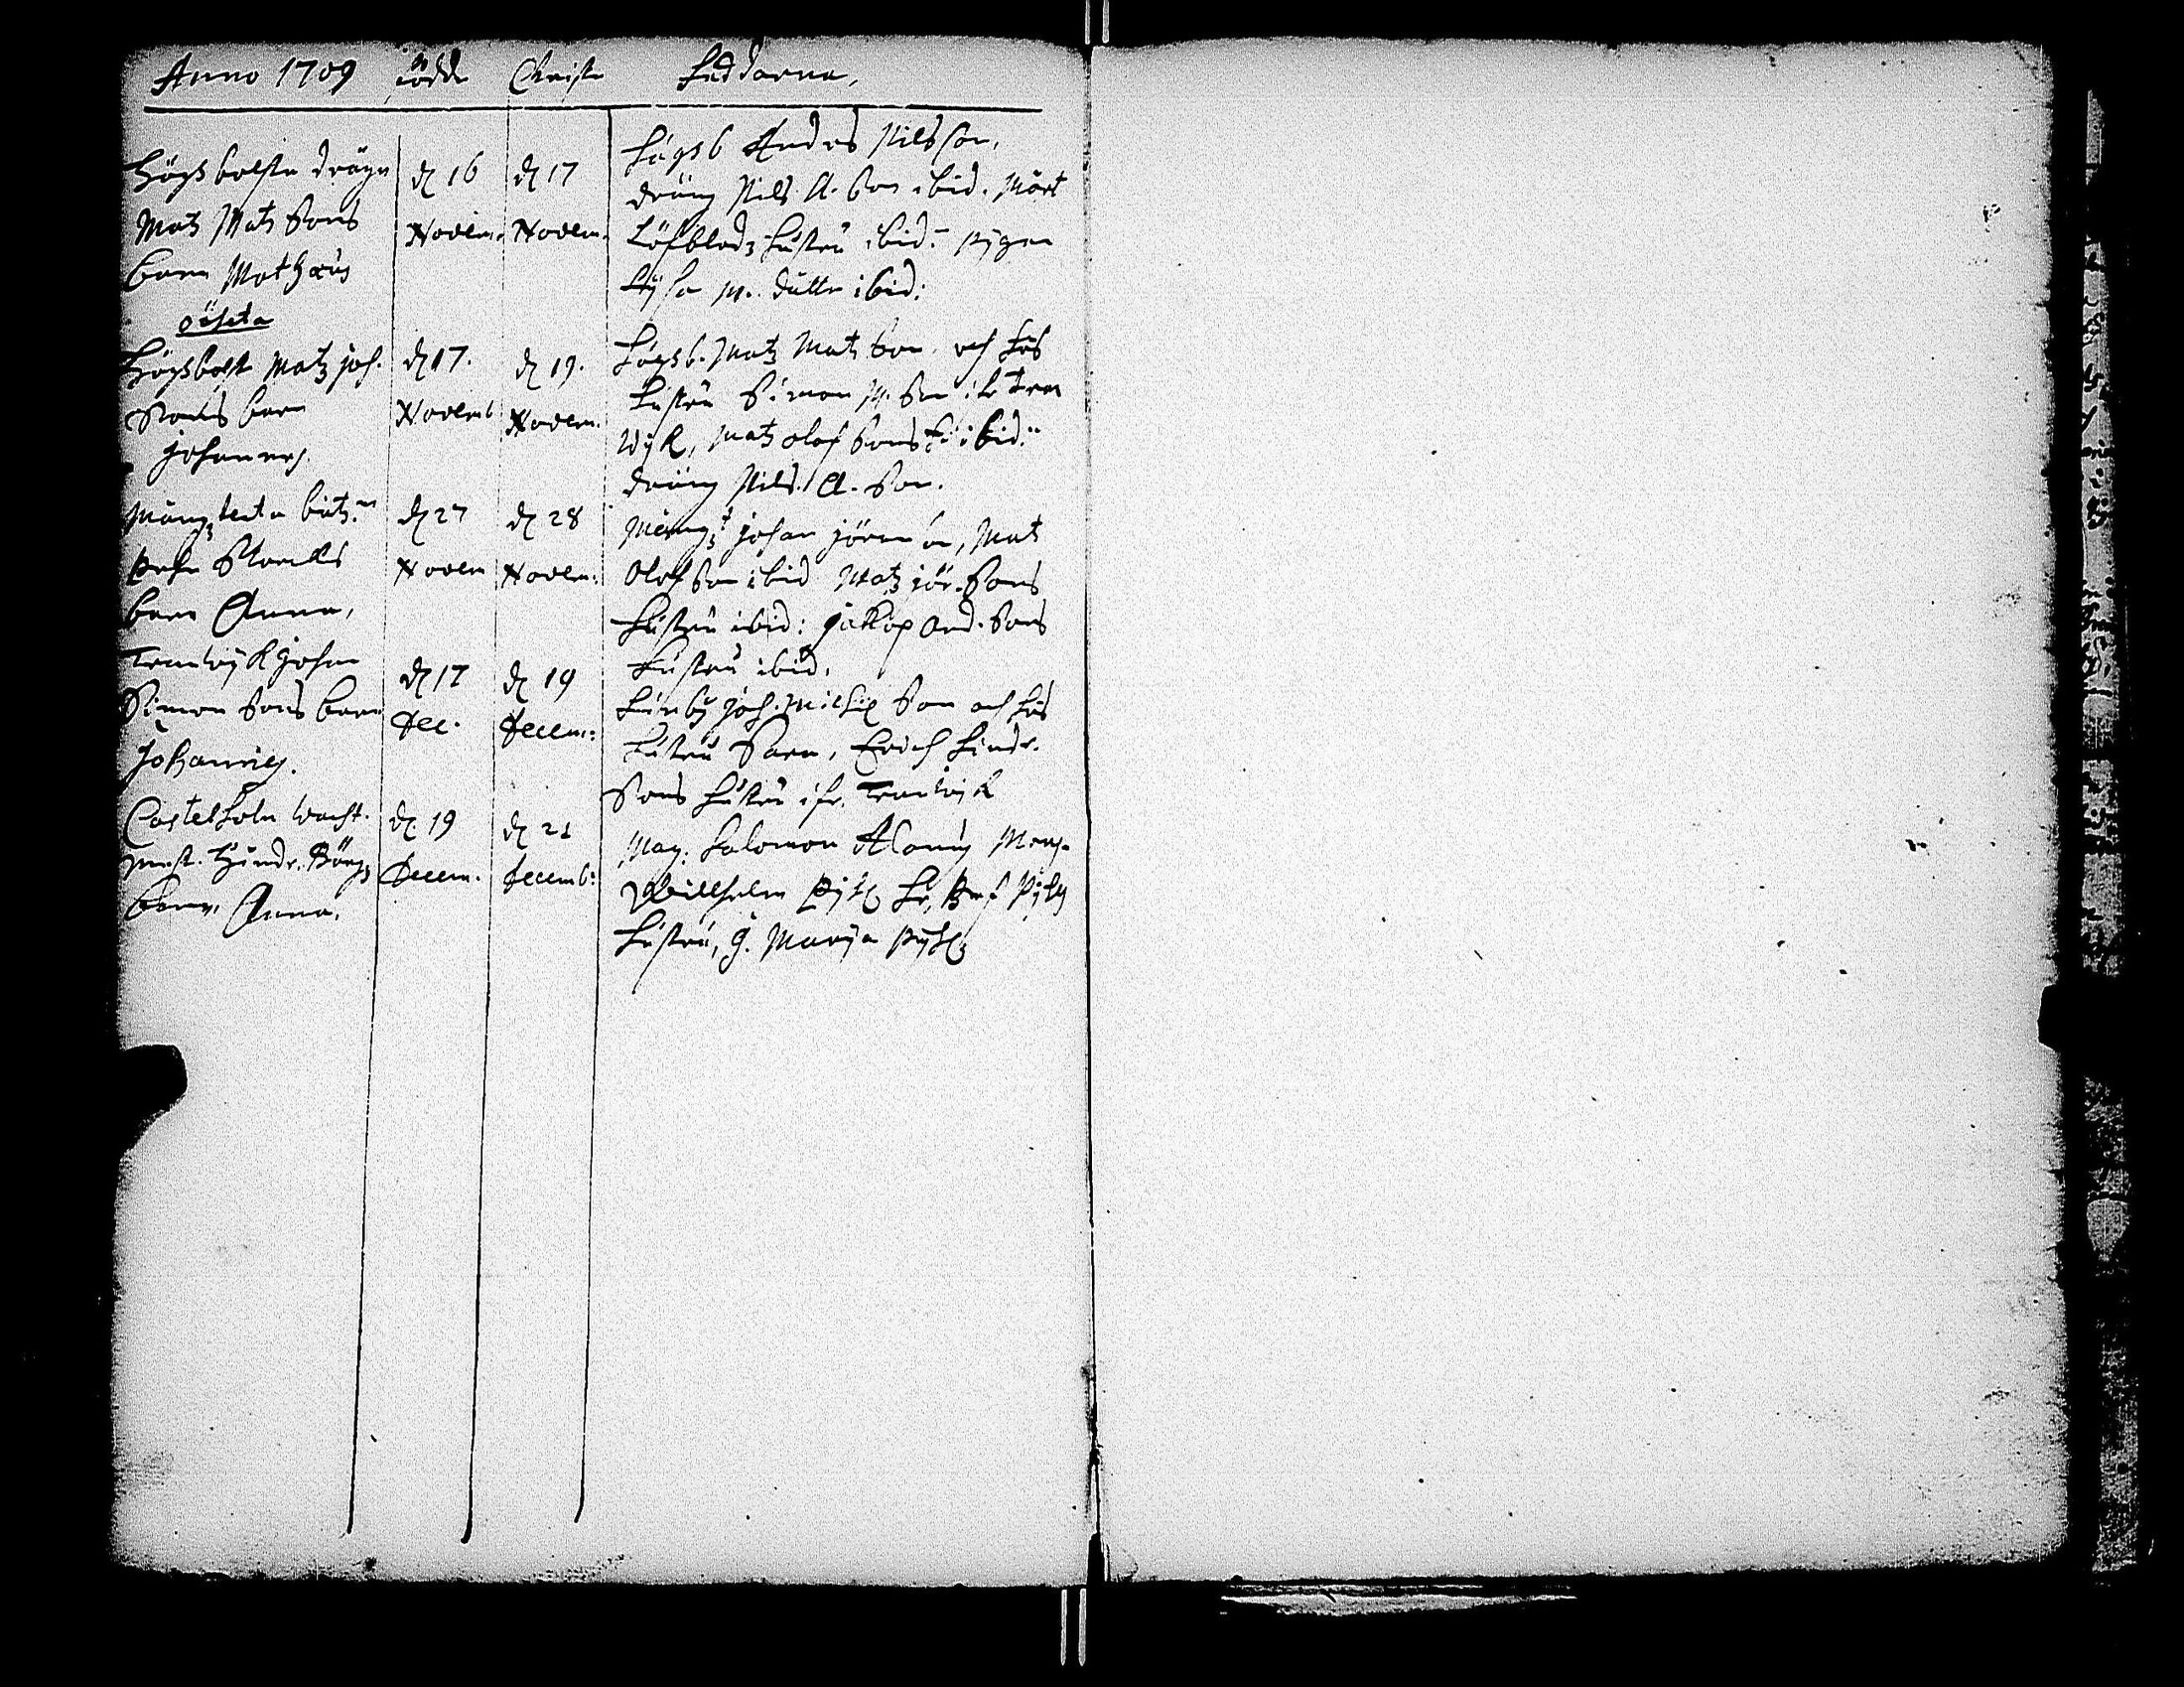 Anno 1709 födde Christn faddarna,
Högsbolsta dräng
Matz Matz Sons
barn Mathæus
oächta
d 16
Novem.
d 17
Novem.
Högsb Andrs Nilsson,
dräng Nils A. Son ibid. Märt
Löfbladz hustru ibid: pigan
Lysa M. dutter ibid:
Högsbolst Matz joh.
Sons barn
Johannes
d 17.
Novemb
d 19.
Novem.
Högsb. Matz Matz Son och hs
hustru Simon M. Son i
wijk, Matz olof Sons h: ibid:
dräng Nils A. Son.
Mång
barn Anna,
d 27
Novem
d 28
Novem:
Mång Johan jören son, Mat
Olofson ibid Matz jör. Sons
hustru ibid: Jakop And. Sons
hustru ibid.
Tranwijk Johan
Simon Sons barn
Johannes.
d 17
Dec.
d 19
Decem:
Lünby joh. Michel Son och hs
hustru Sara, Erich hindr.
Sons hustru ifr. Tranwijk
Castelholm wacht.
mest. Hindr.
barn, Anna.
d. 19
Decem.
d 21
Decemb:
Mag. Salomon Alanus Mons.
Willhelm Pyhl
hustru, J. Marija Pyhl